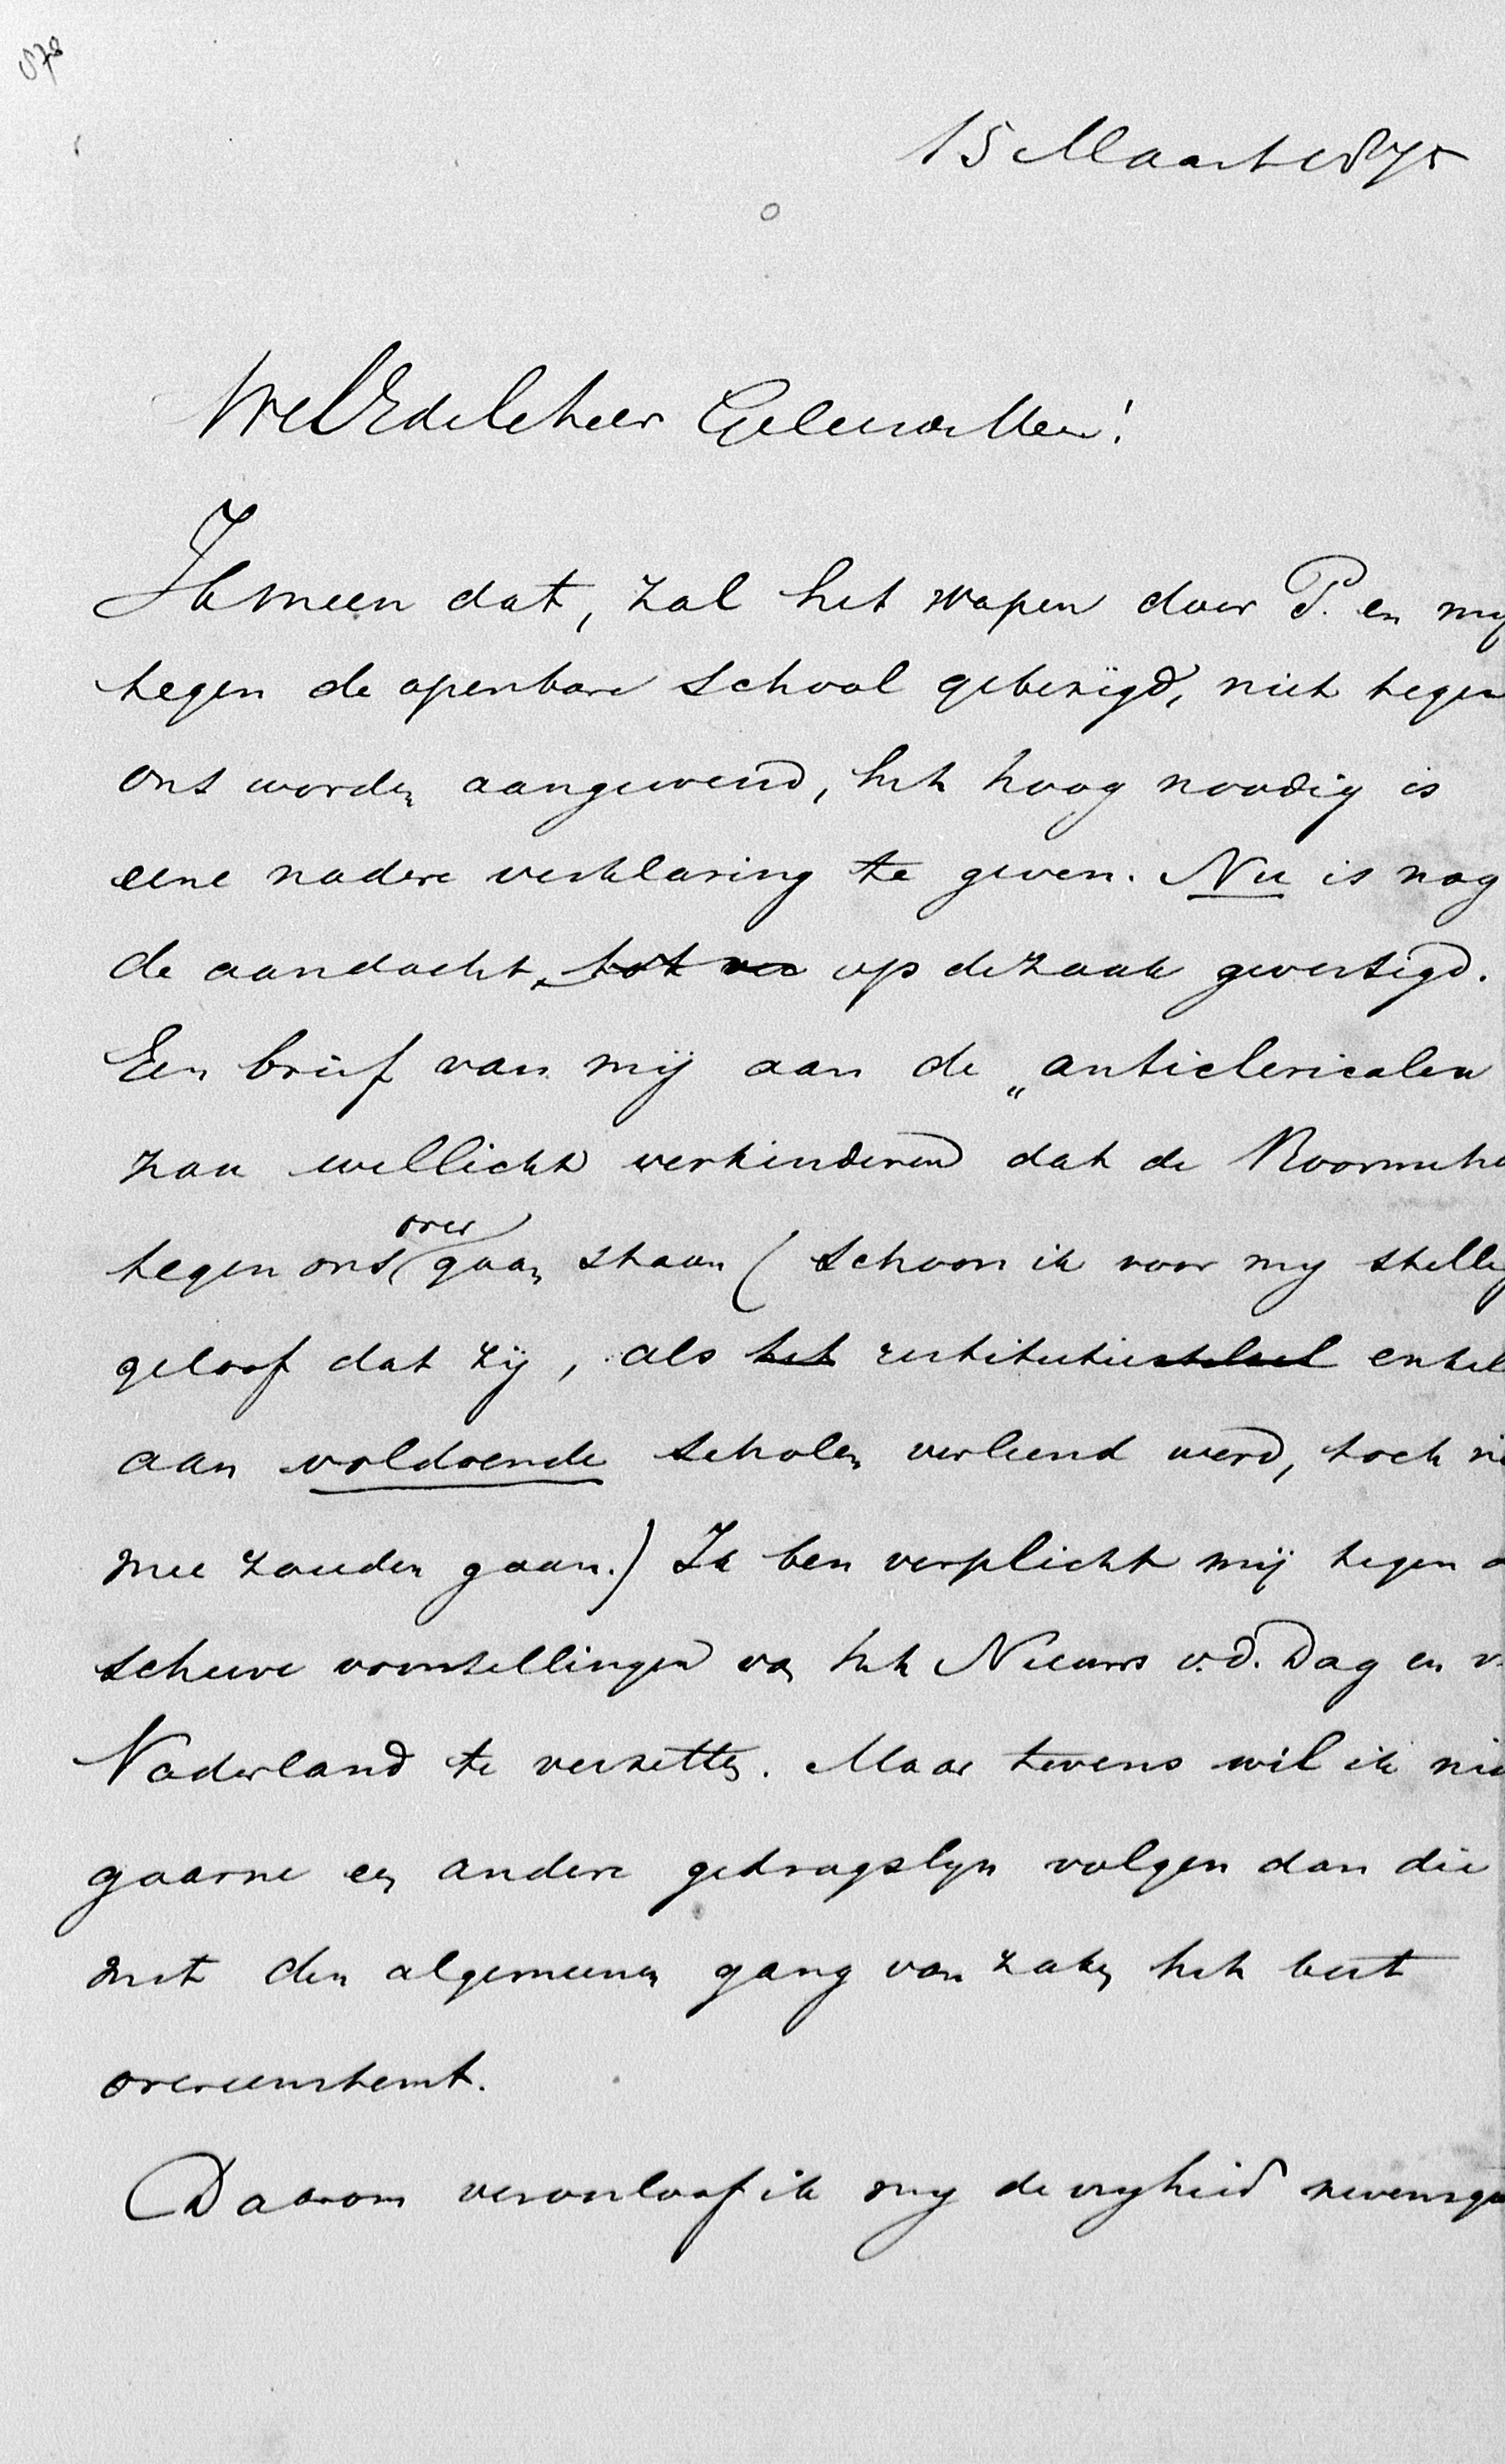 878
15 Maart 1875
WelEdele heer Geleerde!
Ik meen dat, zal het wapen door P. en mij
tegen de openbare school gebezigd, niet tegen
ons worden aangewend, het hoog noodig is
eene nadere verklaring te geven. Nu is nog
de aandacht, tot op de zaak gevestigd.
Een brief van mij aan de „anticlericalen
zou wellicht verhinderen dat de
over
tegen ons gaan staan (schoon ik voor my stellig
geloof dat zij, als het restitutiestelsel enkel
aan voldoende scholen verleend werd, toch ni
mee zouden gaan.) Ik ben verplicht mij tegen
scheeve voorstellingen van het Nieuws v.d. Dag en v
Vaderland te verzetten. Maar tevens wil ik nie
gaarne een andere gedragslyn volgen dan die
met den algemeenen gang van zaken het best
overeenstemt.
Daarom veroorloof ik my de vryheid nevensga